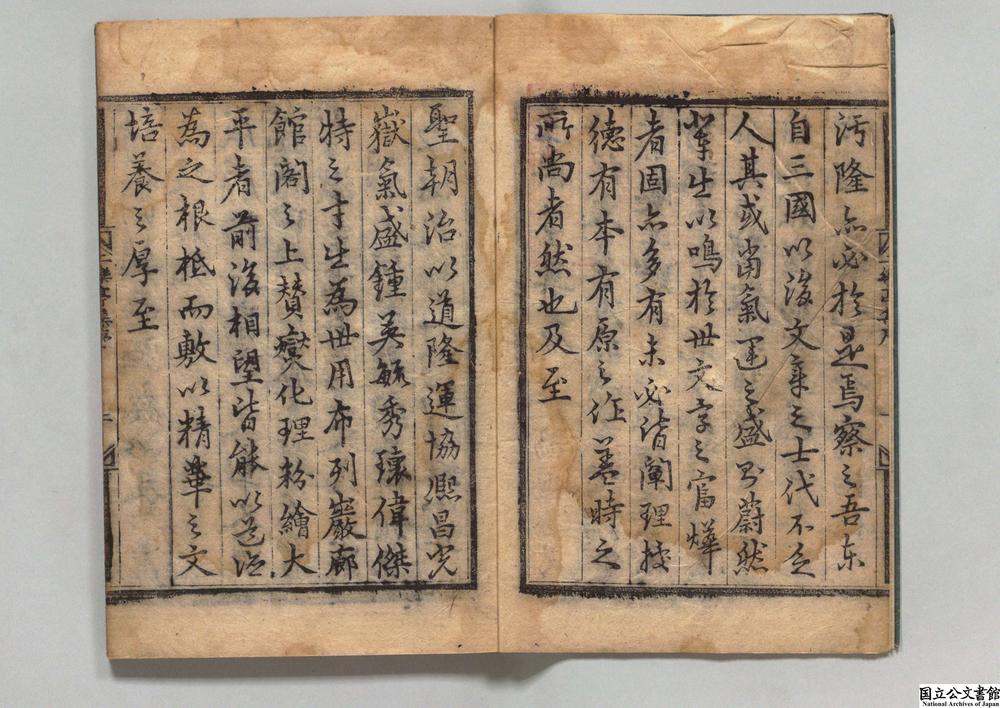 汚隆亦必於是焉察之吾東
自三國以後文章之士代不乏
人其或當氣運之盛則蔚然
輩生以鳴於世文字之富燁
者固亦多有未必皆闡理據
德有本有原之作蓋時之
所尚者然也及至
聖朝治以道隆運協熙昌光
嶽氣盛鍾英毓秀瓌偉傑
特之才生為世用布列巖廊
館閣之上贊爕化理粉繪大
平者前後相望皆能以道德
為之根柢而敷以精華之文
培養之厚至
国立公文書館
National Archives of Japan